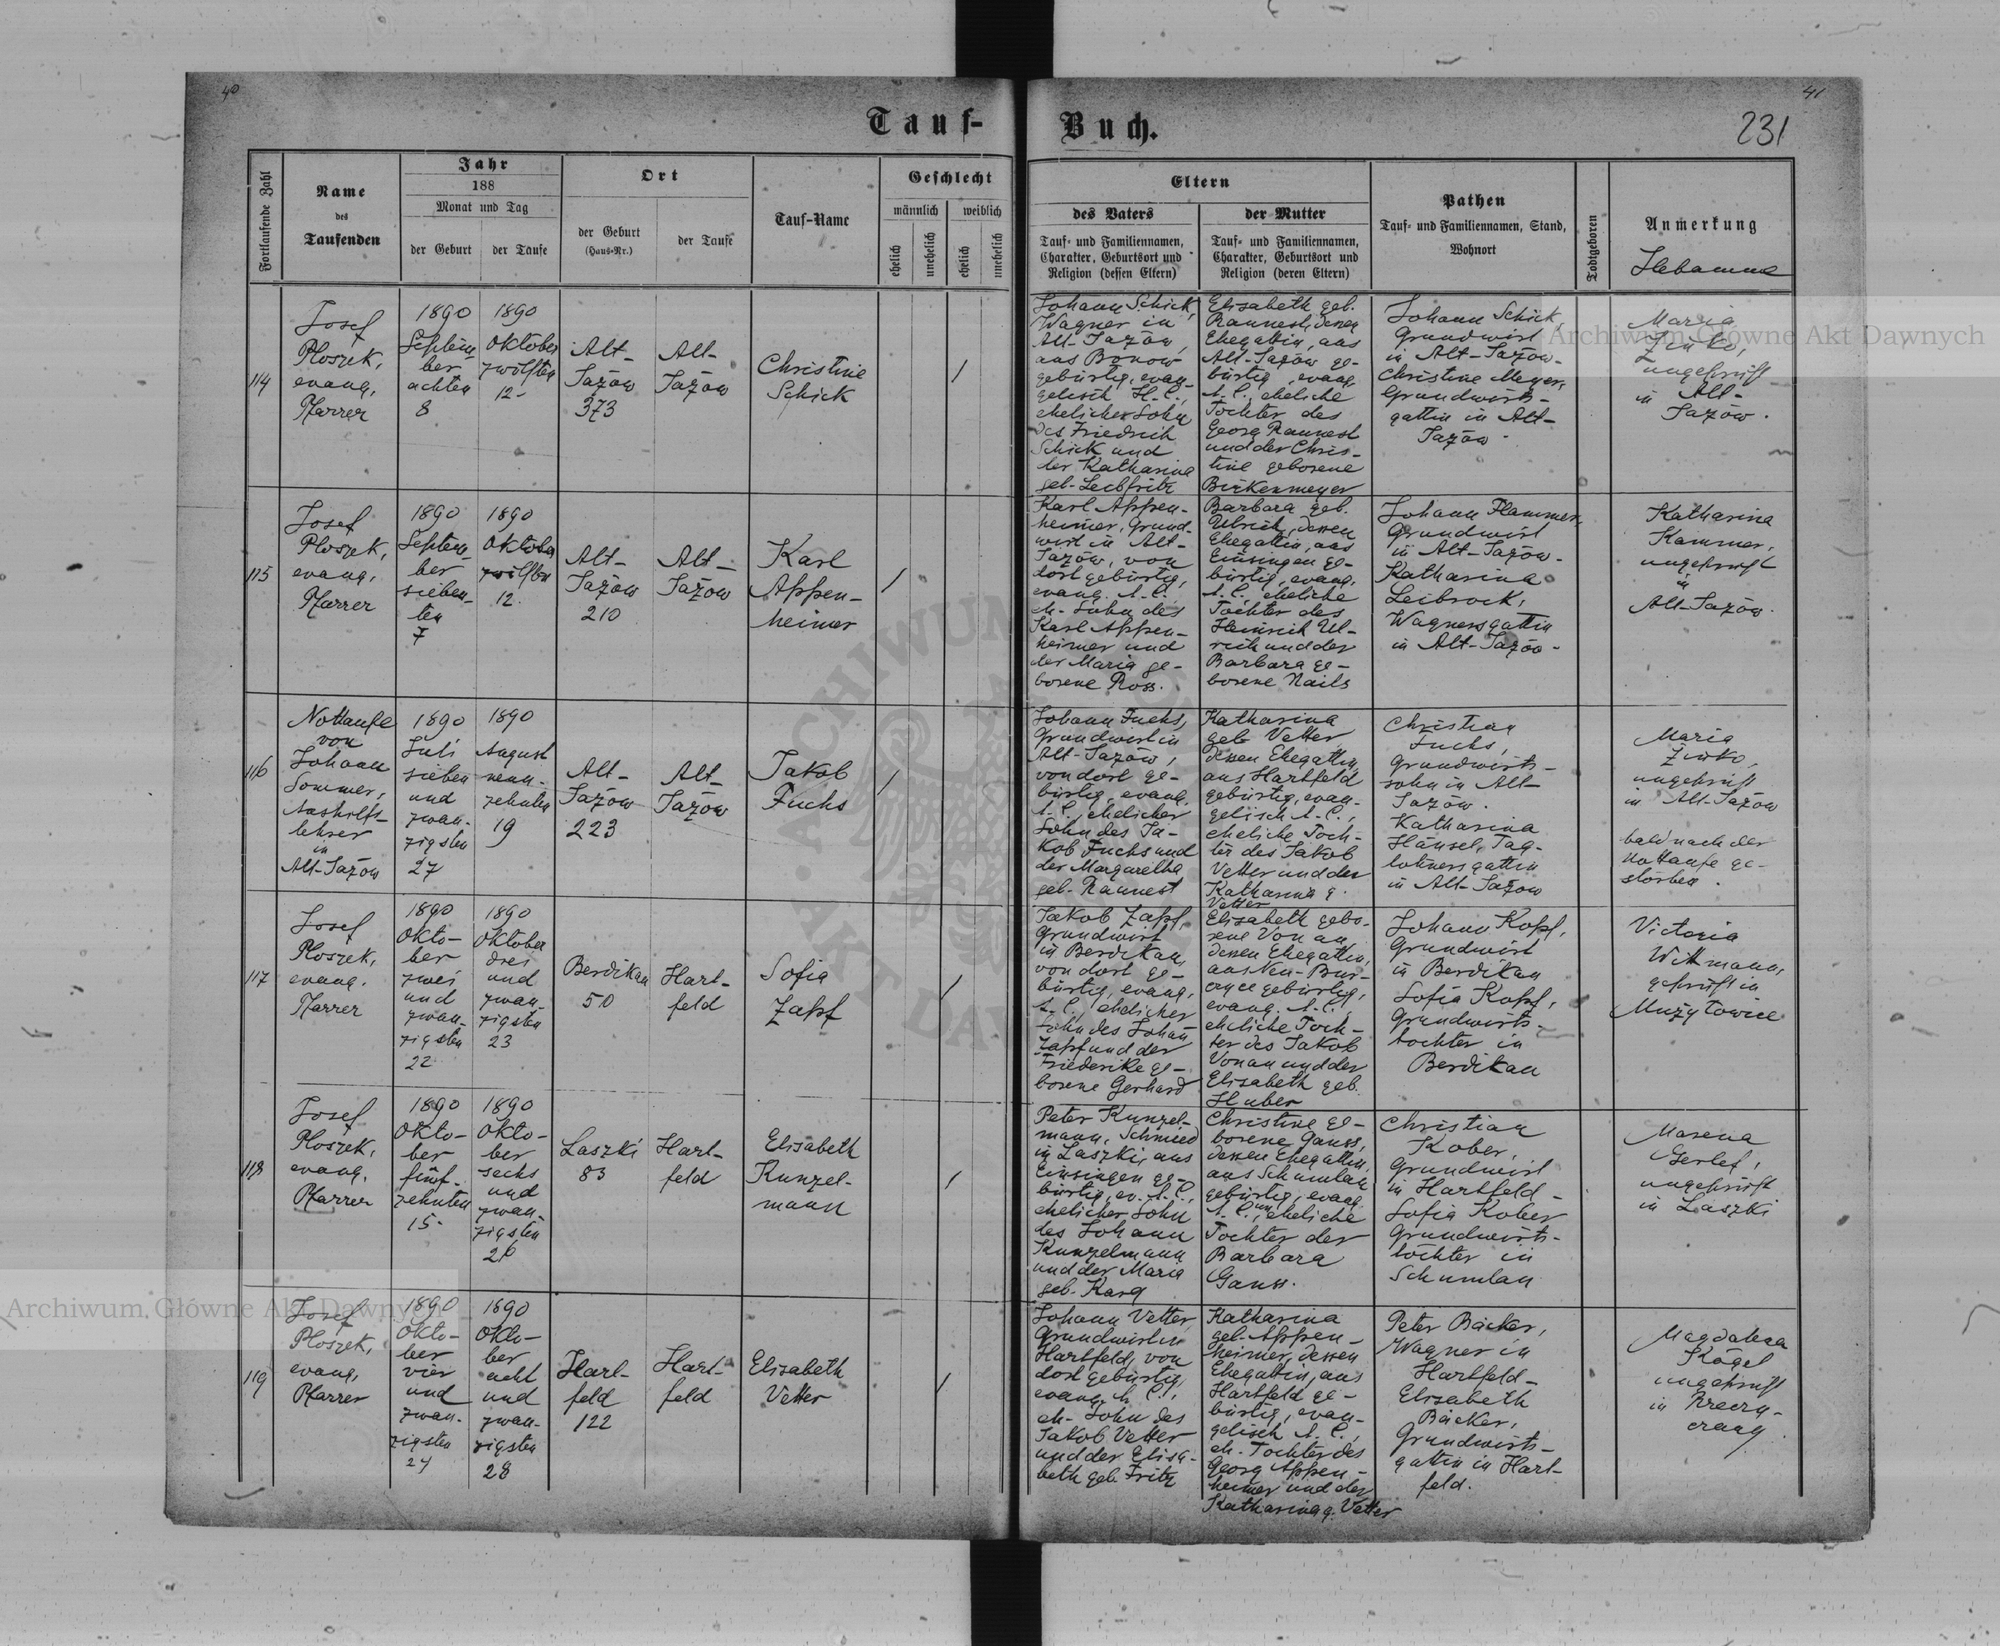 40
41
Tauf-
Buch.
231
Fortlaufende Zahl
Name
des
Taufenden
Jahr
188
Monat und Tag
der Geburt
der Taufe
Ort
der Geburt
(Haus-Nr.)
der Taufe
Tauf-Name
Geschlecht
männlich
weiblich
ehelich
unehelich
ehelich
unehelich
Eltern
des Vaters
Tauf- und Familiennamen,
Charakter, Geburtsort und
Religion (dessen Eltern)
der Mutter
Tauf- und Familiennamen,
Charakter, Geburtsort und
Religion (deren Eltern)
Pathen
Tauf- und Familiennamen, Stand,
Wohnort
Todtgeboren
Anmerkung
Hebamme
114
Josef
Ploszek,
evang.
Pfarrer
1890
Septem-
ber
achten
8
1890
Oktober
zwölften
12-
Alt-
Jazów
373
Alt-
Jazów
Christine
Schick
/
Johann Schick,
Wagner in
Alt-Jazów,
aus Bonow
gebürtig, evan-
gelisch H.C.,
ehelicher Sohn
des Friedrich
Schick und
der Katharina
geb. Leibfritz
Elisabeth geb.
Raunest, dessen
Ehegattin, aus
Alt-Jazów ge-
bürtig, evang.
A.C., eheliche
Tochter des
Georg Raunest
und der Chris-
tine geborene
Birkenmeyer
Johann Schick,
Grundwirt
in Alt-Jazów-
Christine Meyer,
Grundwirts-
gattin in Alt-
Jazów-
Maria
Zinko,
ungeprüft
in Alt-
Jazów.
115
Josef
Ploszek,
evang.
Pfarrer
1890
Septem-
ber
sieben-
ten
7
1890
Oktober
zwölften
12.
Alt-
Jazów
210
Alt-
Jazów
Karl
Appen-
heimer
/
Karl Appen-
heimer, Grund-
wirt in Alt-
Jazów, von
dort gebürtig,
evang. A.C.,
eh. Sohn des
Karl Appen-
heimer und
der Maria ge-
borene Ross.
Barbara geb.
Ulrich, dessen
Ehegattin, aus
Einsingen ge-
bürtig, evang.
A.C., eheliche
Tochter des
Heinrich Ul-
rich und der
Barbara ge-
borene Nails
Johann Flammer,
Grundwirt
in Alt-Jazów-
Katharina
Leibrock,
Wagnersgattin
in Alt-Jazów-
Katharina
Kammer,
ungeprüft
in
Alt-Jazów.
116
Nottaufe
von
Johann
Sommer,
Aushilfs-
lehrer
in
Alt-Jazów
1890
Juli
sieben
und
zwan-
zigsten
27
1890
August
neun-
zehnten
19
Alt-
Jazów
223
Alt-
Jazów
Jakob
Fuchs
/
Johann Fuchs,
Grundwirt in
Alt-Jazów,
von dort ge-
bürtig, evang.
A.C., ehelicher
Sohn des Ja-
kob Fuchs und
der Margaretha
geb. Raunest
Katharina
geb. Vetter,
dessen Ehegattin,
aus Hartfeld
gebürtig, evan-
gelisch A.C.,
eheliche Toch-
ter des Jakob
Vetter und der
Katharina g.
Vetter
Christian
Fuchs,
Grundwirts-
sohn in Alt-
Jazów.
Katharina
Hänsel, Tag-
löhnersgattin
in Alt-Jazów
Maria
Zinko,
ungeprüft
in Alt-Jazów
bald nach der
Nottaufe ge-
storben.
117
Josef
Ploszek,
evang.
Pfarrer
1890
Okto-
ber
zwei
und
zwan-
zigsten
22
1890
Oktober
drei
und
zwan-
zigsten
23
Berdikau
50
Hart-
feld
Sofia
Zapf
/
Jakob Zapf,
Grundwirt
in Berdikau,
von dort ge-
bürtig, evang.
A.C., ehelicher
Sohn des Johan
Zapf und der
Friederike ge-
borene Gerhard
Elisabeth gebo-
rene Vonau,
dessen Ehegattin,
aus Neu-Bur-
czyce gebürtig,
evang. A.C.,
eheliche Toch-
ter des Jakob
Vonau und der
Elisabeth geb.
Huber
Johann Kopf,
Grundwirt
in Berdikau
Sofia Kopf,
Grundwirts-
tochter in
Berdikau
Victoria
Wittmann,
geprüft in
Mużyłowice
118
Josef
Ploszek,
evang.
Pfarrer
1890
Okto-
ber
fünf-
zehnten
15-
1890
Okto-
ber
sechs
und
zwan-
zigsten
26
Laszki
83
Hart-
feld
Elisabeth
Kunzel-
mann
/
Peter Kunzel-
mann, Schmied
in Laszki, aus
Einsingen ge-
bürtig, ev. A.C.,
ehelicher Sohn
des Johann
Kunzelmann
und der Maria
geb. Karg
Christine ge-
borene Gauss,
dessen Ehegattin,
aus Schumlau
gebürtig, evang.
A.C., uneheliche
Tochter der
Barbara
Gauss.
Christian
Kober,
Grundwirt
in Hartfeld-
Sofia Kober
Grundwirts-
töchter in
Schumlau
Marena
Gerlef,
ungeprüft
in Laszki
119
Josef
Ploszek,
evang.
Pfarrer
1890
Okto-
ber
vier
und
zwan-
zigsten
24
1890
Okto-
ber
acht
und
zwan-
zigsten
28
Hart-
feld
122
Hart-
feld
Elisabeth
Vetter
/
Johann Vetter,
Grundwirt in
Hartfeld, von
dort gebürtig,
evang. A.C.,
eh. Sohn des
Jakob Vetter
und der Elisa-
beth geb. Fritz
Katharina
geb. Appen-
heimer, dessen
Ehegattin, aus
Hartfeld ge-
bürtig, evan-
gelisch A.C.,
eh. Tochter des
Georg Appen-
heimer und der
Katharina g. Vetter
Peter Bäcker,
Wagner in
Hartfeld-
Elisabeth
Bäcker,
Grundwirts-
gattin in Hart-
feld.
Magdalena
Kögel
ungeprüft
in
Archiwum Główne Akt Dawnych
Archiwum Główne Akt Dawnych